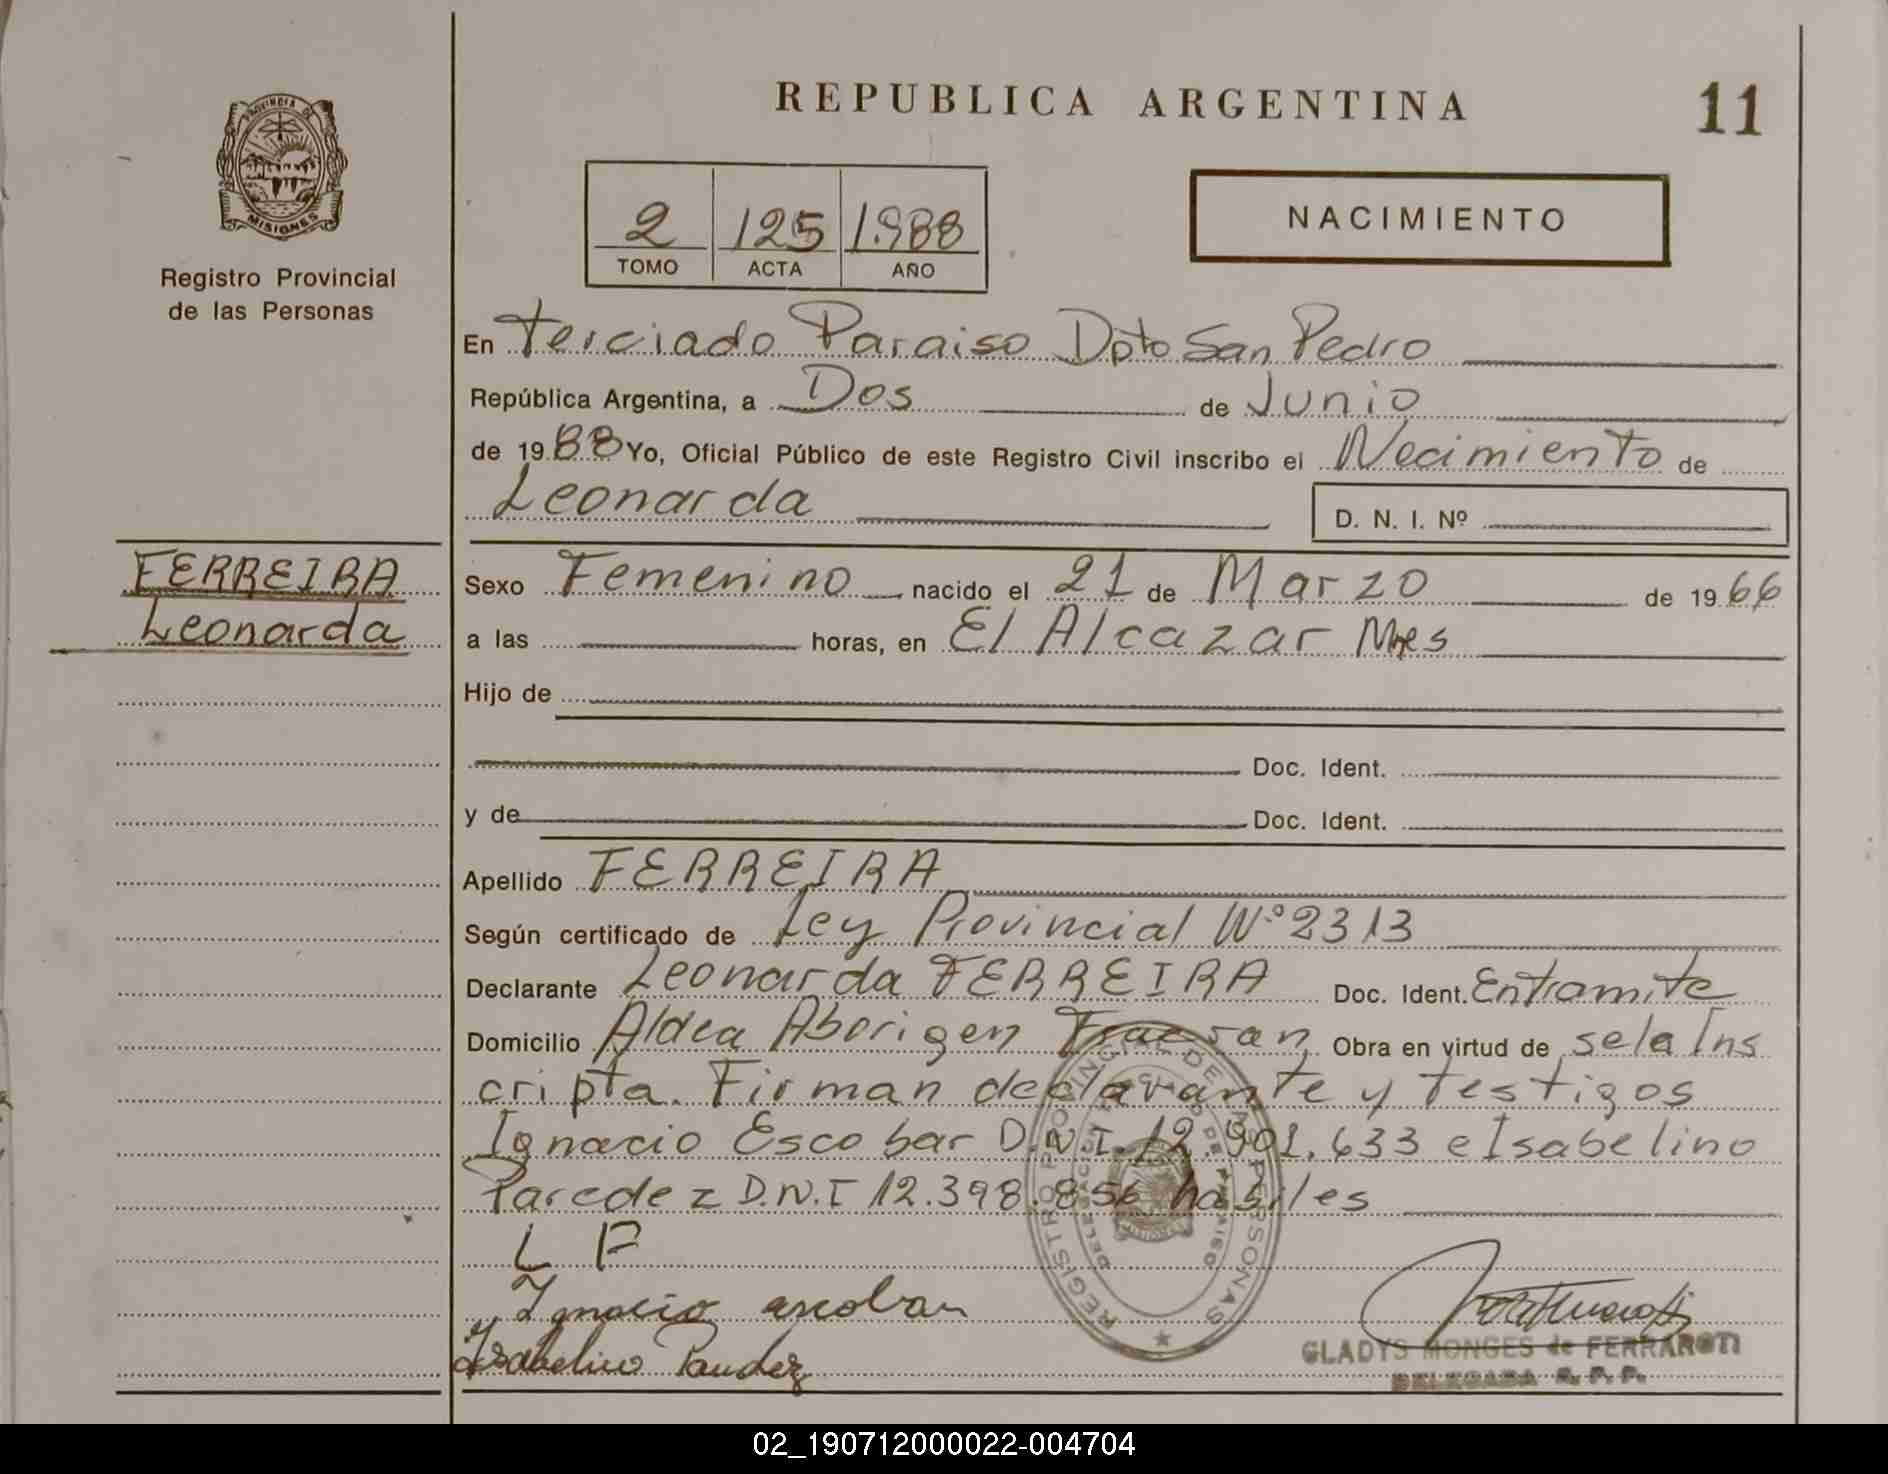 REPUBLICA ARGENTINA
11
PROVINCIA DE
MISIONES
Registro Provincial
de las Personas
2 125 1.988
TOMO ACTA AÑO
NACIMIENTO
En Terciado Paraiso Dpto San Pedro
República Argentina, a Dos de Junio
de 1988 Yo, Oficial Público de este Registro Civil inscribo el Nacimiento de
Leonarda D. N. I. Nº
FERREIRA
Leonarda
Sexo Femenino nacido el 21 de Marzo de 1966
a las horas, en El Alcazar Mnes
Hijo de
Doc. Ident.
y de Doc. Ident.
Apellido FERREIRA
Según certificado de Ley Provincial Nº 2313
Declarante Leonarda FERREIRA Doc. Ident. Entramite
Domicilio Aldea Aborigen Fracran Obra en virtud de sela Ins
cripta. Firman declarante y testigos
Ignacio Escobar D.N.I. 12.901.633 e Isabelino
Paredez D.N.I 12.398.856 habiles
REGISTRO PROVINCIAL DE LAS PERSONAS
L F
Ignacio escobar
Isabelino Paredez
GLADYS MONGES de FERRAROTI
DELEGADA R. P. P.
02_190712000022-004704